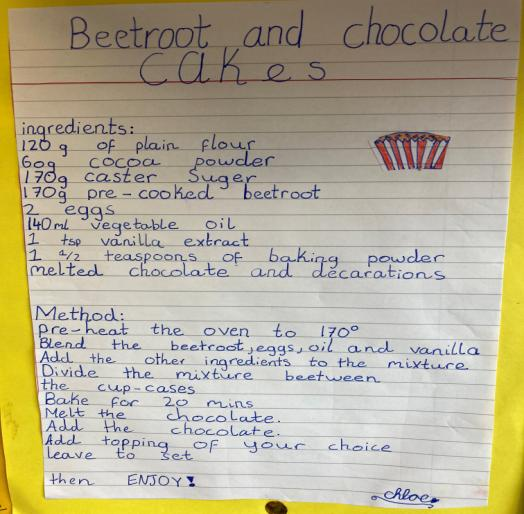 Beetroot and chocolate
cakes
ingredients:
120 g of plain flour
60g cocoa powder
170g caster Suger
170g pre-cooked beetroot
2 eggs
140ml vegetable oil
1 tsp vanilla extract
1 1/2 teaspoons of baking powder
melted chocolate and décarations
Method:
Pre-heat the oven to 170°
Blend the beetroot, eggs, oil and vanilla
Add the other ingredients to the mixture
Divide the mixture beetween
the cup-cases
Bake for 20 mins
Melt the chocolate.
Add the chocolate.
Add topping of your choice
leave to set
then ENJOY!
Chloe